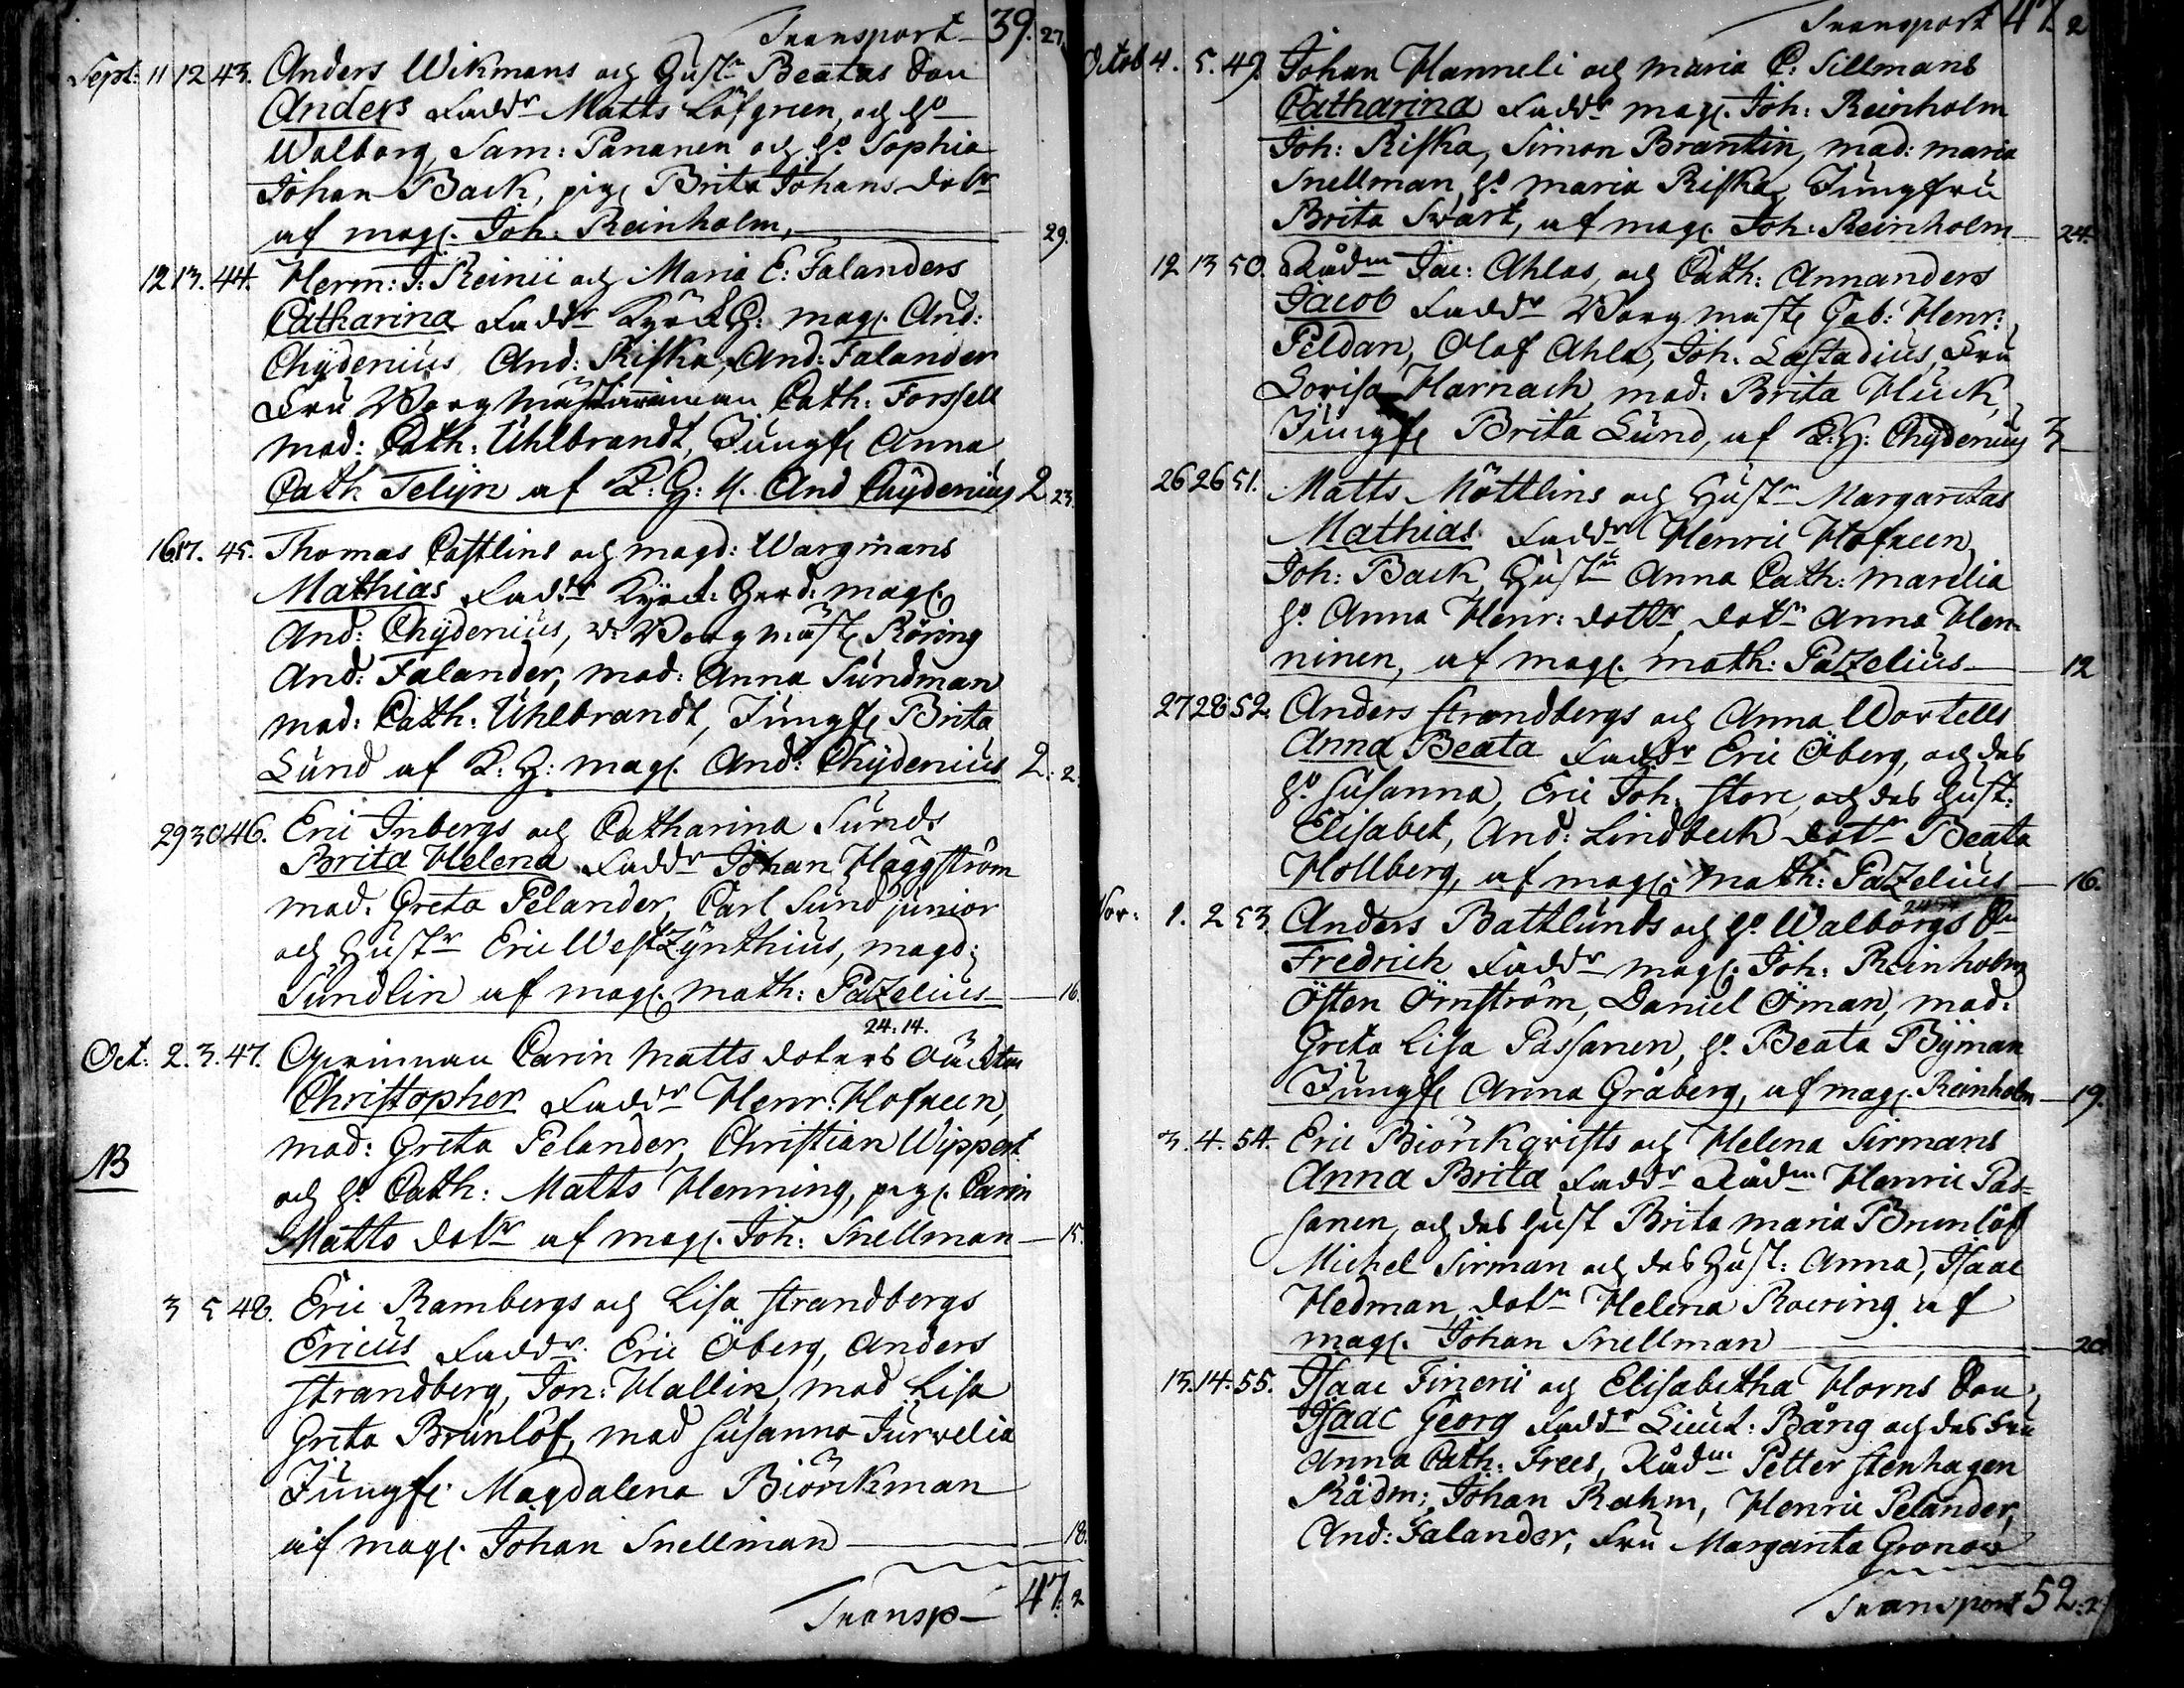 Transport 39. 27
Sept: 11 12 43. Anders Wikmans och Hustr Beatas Son
Anders Faddr Matts Löfgreen, och H:o
Walborg, Sam: Pananen och H:o Sophia
Johan Back, pig: Brita Johans dotr
af mag: Joh: Reinholm, 29.
12 13. 44. Herm: J: Reinii och Maria E: Falanders
Catharina Faddr Kyrck H: mag: And:
Chydenius, And: Riska, And: Falander
Fru Borgmästarinnan Cath: Forssell
mad: Cath: Uhlbrandt, Jungfr Anna
Cath Telijn af K: H: M. And Chydenius 2 23
16 17. 45. Thomas Castlins och magd: Wargmans
Mathias Faddr Kyrck: Herd: mag:
And: Chydenius, Borgmäst: Röring
And: Falander, mad: Anna Sundman
mad: Cath: Uhlbrandt, Jungfr Brita
Lund af K: H: mag: And: Chydenius 2. 2.
29 30 46. Eric Inbergs och Catharina Sunds
Brita Helena Faddr Johan Häggström
mad: Greta Pelander, Carl Sund junior
och Hustr Eric West Zynthius, magd:
Sundlin af mag: math: Pazelius 16.
24. 14.
Oct: 2. 3. 47. Qvinnan Carin Matts doters oäckta
Christopher Faddr Henr: Hofreen,
mad: Greta Pelander, Christian Wippert
NB
och H:o Cath: Matts Henning, pig: Carin
Matts dotr af mag: Joh: Snellman 15.
3 5 48. Eric Rambergs och Lisa Strandbergs
Ericus Faddr: Eric Öberg, Anders
Strandberg, Jon: Hallin, mad Lisa
Greta Brunlöf, mad Susanna Jurvelia
Jungfr Magdalena Biörckman
af mag: Johan Snellman 18.
Transp 47. 2
Transport 47. 2
Octob 4. 5. 49. Johan Hanneli och Maria C: Sillmans
Catharina Faddr mag: Joh: Reinholm
Joh: Riska, Simon Brantin, mad: maria
Snellman, H:o maria Riska, Jungfru
Brita Swart, af mag: Joh: Reinholm 24.
12 13 50. Rådm Jac: Ahlas, och Cath: Annanders
Jacob Faddr Borgmäst: Gab: Henr:
Peldan, Olof Ahla, Joh: Lastadius, Fru
Lovisa Harnack, mad: Brita Huck,
Jungfr Brita Lund, af K: H: Chydenius 3
26 26 51. Matts Möttlins och Hustr Margaretas
Mathias Faddr Henric Hofreen,
Joh: Back, Hustr Anna Cath: Marelia
H:o Anna Henr: dottr, dotr Anna Hen-
ninen, af mag: math: Pazelius 12
27 28 52. Anders Strandbergs och Anna Wortells
Anna Beata Faddr Eric Öberg, och des
H:o Susanna, Eric Joh: Store, och des Hust:
Elisabet, And: Lindbeck dotr Beata
Hollberg, af mag: math: Pazelius 16.
Nov: 1. 2 53. Anders Battlunds och H:o Walborgs Sn
Fredrich Faddr mag: Joh: Reinholm
Östen Örnström, Daniel Öman, mad:
Greta Lisa Passanen, H:o Beata Byman
Jungfr Anna Gråberg, af mag: Reinholm 19.
3. 4. 54. Eric Biörckqvists och Helena Sirmans
Anna Brita Faddr Rådm Henric Pas-
sanen, och des Hust Brita maria Brunlöf
Michel Sirman och des Hust: Anna, Isaac
Hedman, dotr Helena Roering af
mag: Johan Snellman 20
13. 14. 55. Isaac Finerii och Elisabetha Horns Son
Isaac Georg Faddr Lieut: Bång och des Fru
Anna Cath: Frees, Rådm Petter Stenhagen
Rådm: Johan Rahm, Henric Pelander,
And: Falander, Fru Margareta Gronow
Transport 52. 2